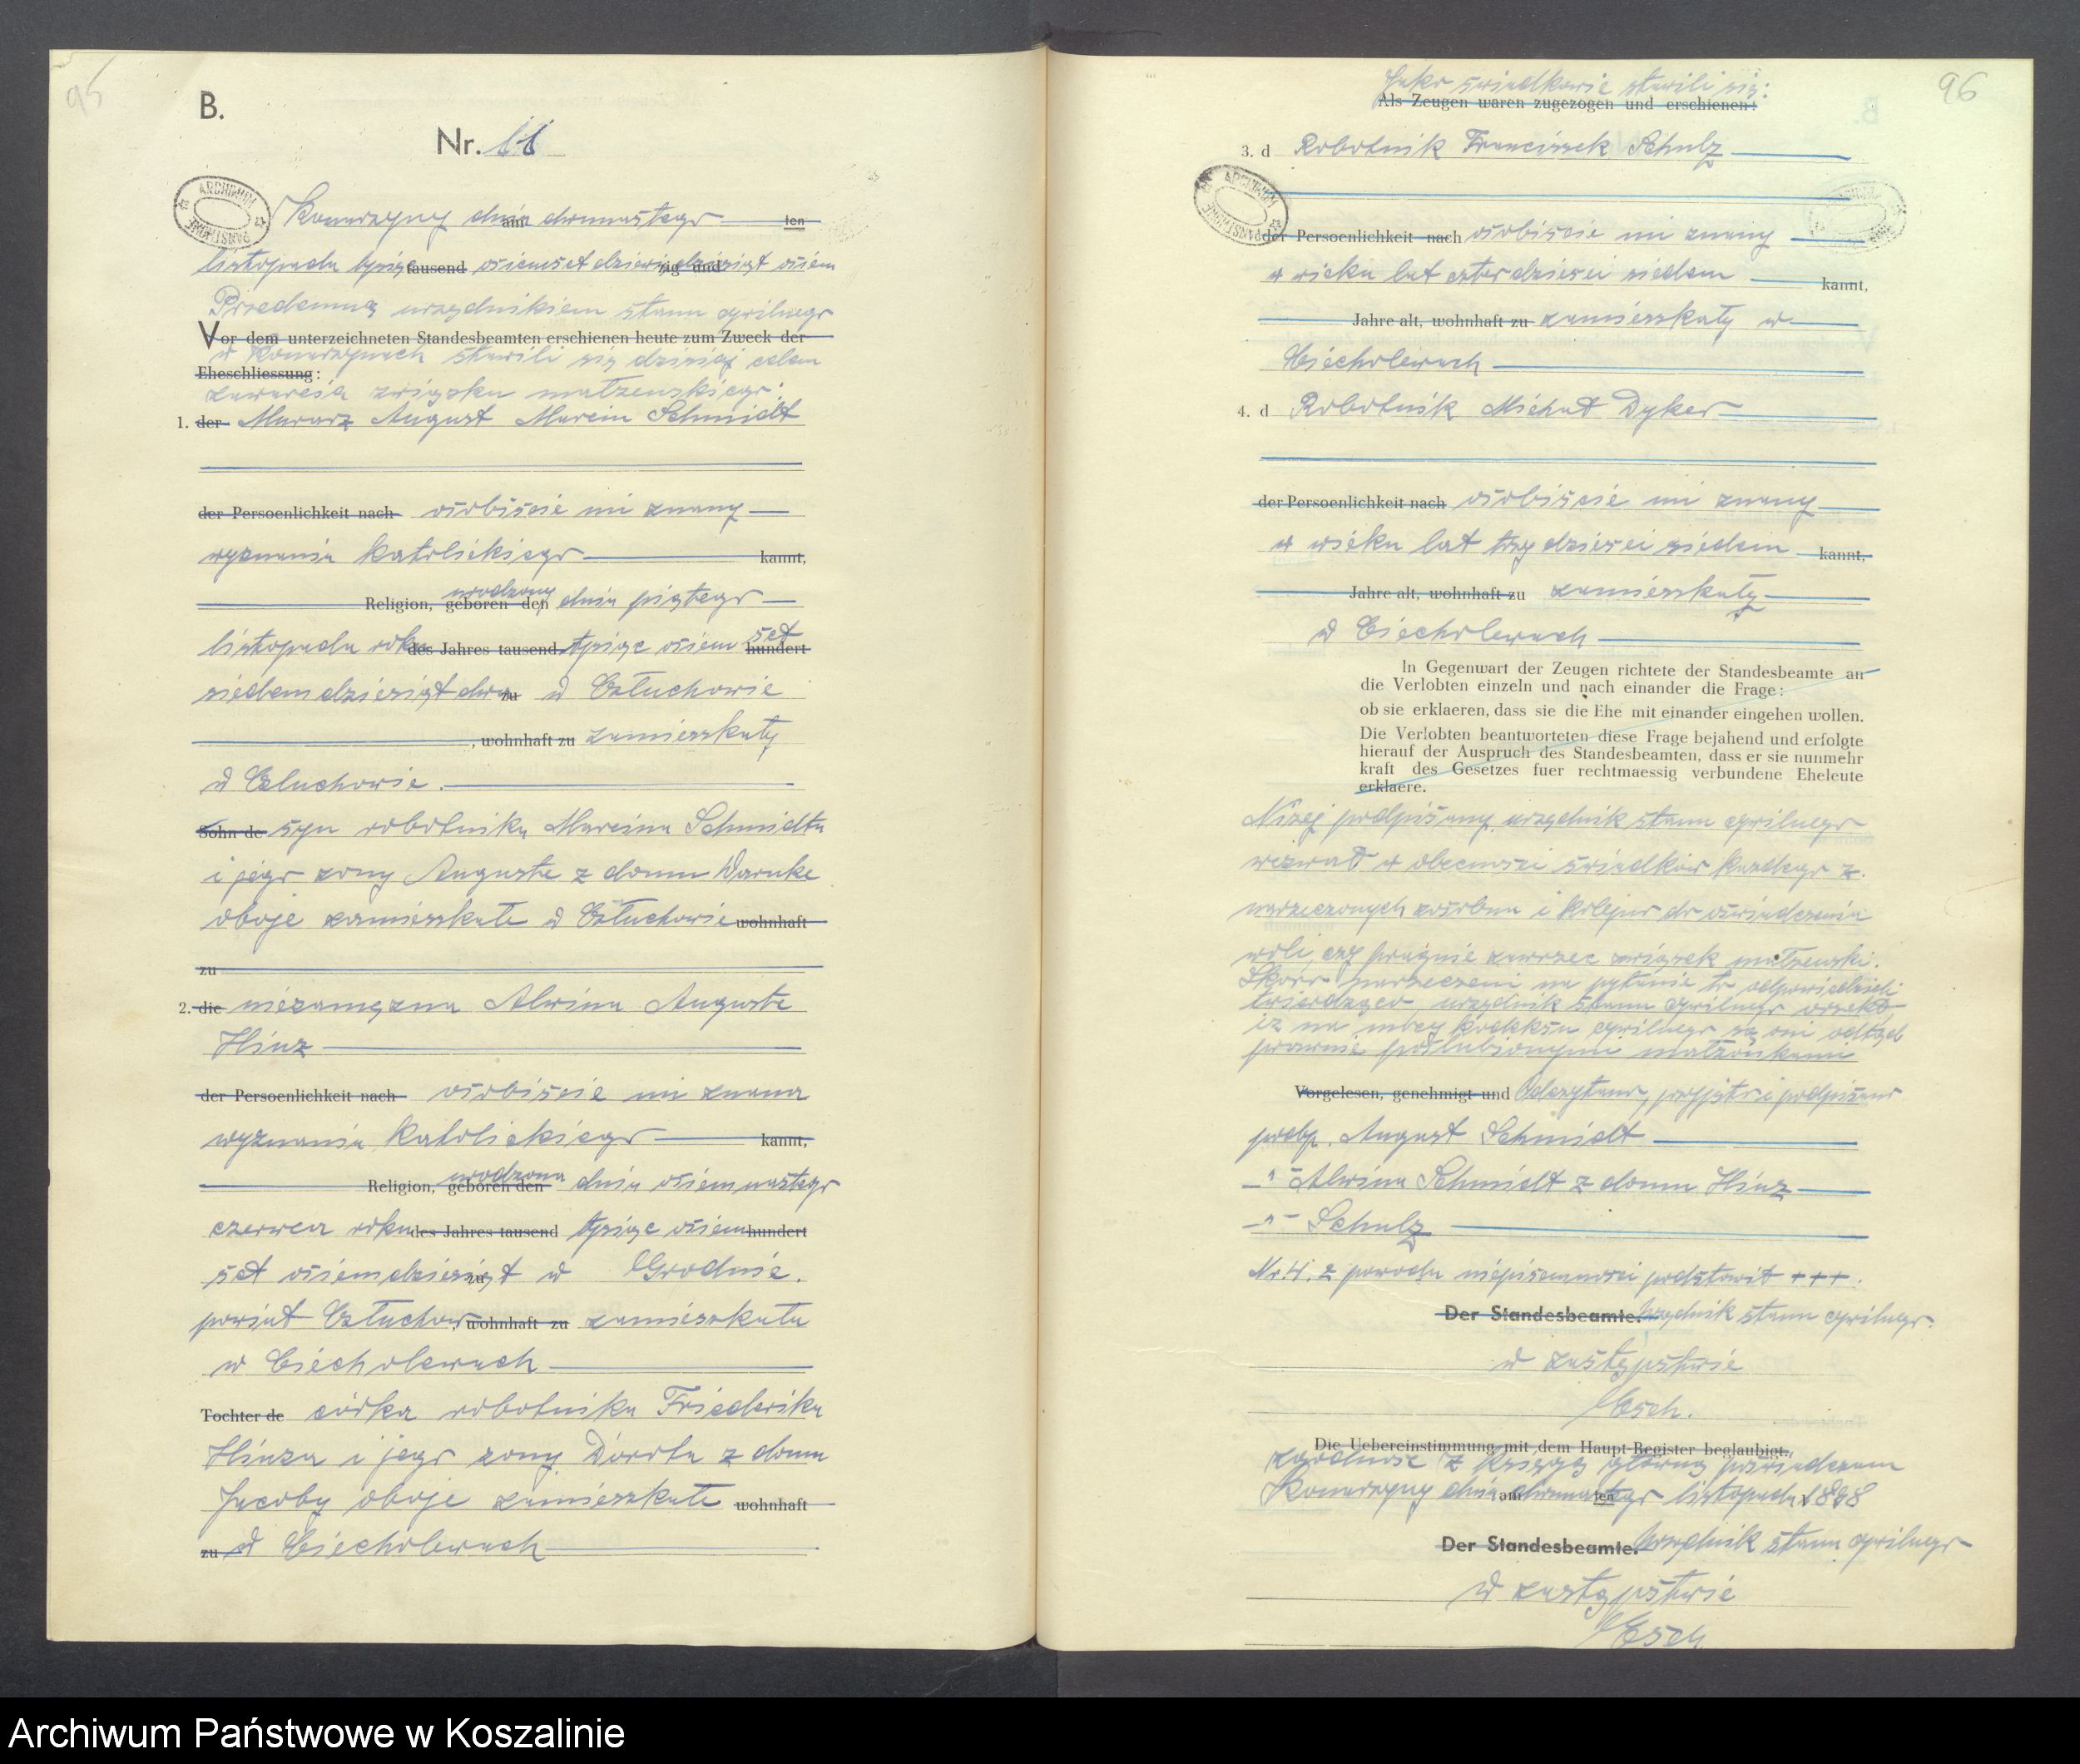 95
B.
Nr. 11
ARCHIWUM PAŃSTWOWE
Konarzyny dnia am dwunastego ten
listopada tysiąc tausend osiemset dziewięćdziesiąt zig und osiem
Przedemną urzędnikiem stanu cywilnego
Vor dem unterzeichneten Standesbeamten erschienen heute zum Zweck der
w Konarzynach stawili się dzisiaj celem
Eheschliessung:
zawarcia związku małżeńskiego:
1. der Murarz August Marcin Schmidt
der Persoenlichkeit nach osobiście mi znany
wyznania katolickiego kannt,
urodzony
Religion, geboren den dnia piątego
listopada roku des Jahres tausend tysiąc osiem set hundert
siedemdziesiąt dwa zu w Człuchowie
, wohnhaft zu zamieszkały
w Człuchowie.
Sohn de syn robotnika Marcina Schmidta
i jego żony Auguste z domu Warnke
oboje zamieszkałe w Człuchowie wohnhaft
zu
2. die niezamężna Alwina Auguste
Hinz
der Persoenlichkeit nach osobiście mi znana
wyznania katolickiego kannt,
urodzona
Religion, geboren den dnia osiemnastego
czerwca roku des Jahres tausend tysiąc osiem hundert
set osiemdziesiąt zu w Grodnie.
powiat Człuchow, wohnhaft zu zamieszkała
w Ciecholewach
Tochter de córka robotnika Friederika
Hinza i jego żony Dorota z domu
Jacoby oboje zamieszkałe wohnhaft
zu w Ciecholewach
96
Jako świadkowie stawili się:
Als Zeugen waren zugezogen und erschienen:
3. d Robotnik Franciszek Schulz
ARCHIWUM PAŃSTWOWE
der Persoenlichkeit nach osobiście mi znany
w wieku lat czterdzieści siedem kannt,
Jahre alt, wohnhaft zu zamieszkały w
Ciecholewach
4. d Robotnik Michał Dyker
der Persoenlichkeit nach osobiście mi znany
w wieku lat trzydzieści siedem kannt,
Jahre alt, wohnhaft zu zamieszkały
w Ciecholewach
In Gegenwart der Zeugen richtete der Standesbeamte an
die Verlobten einzeln und nach einander die Frage:
ob sie erklaeren, dass sie die Ehe mit einander eingehen wollen.
Die Verlobten beantworteten diese Frage bejahend und erfolgte
hierauf der Auspruch des Standesbeamten, dass er sie nunmehr
kraft des Gesetzes fuer rechtmaessig verbundene Eheleute
erklaere.
Niżej podpisany urzędnik stanu cywilnego
wezwał w obecności świadków każdego z
narzeczonych zosobna i kolejno do oświadczenia
woli, czy pragnie zawrzeć związek małżeński.
Skoro narzeczeni na pytanie to odpowiedzieli
twierdząco, urzędnik stanu cywilnego orzekł
iż na mocy kodeksu cywilnego są oni odtąd
prawnie poślubionymi małżonkami
Vorgelesen, genehmigt und Odczytano, przyjęto i podpisano
podp. August Schmidt
-"- Alwina Schmidt z domu Hinz
-"- Schulz
Nr. 4. z powodu niepiśmności podstawił + + + .
Der Standesbeamte. Urzędnik stanu cywilnego.
w zastępstwie
Esch.
Die Uebereinstimmung mit dem Haupt-Register beglaubigt.
zgodność z księgą główną poświadczam
Konarzyny dnia am dwunastego ten listopada 1898
Der Standesbeamte. Urzędnik stanu cywilnego
w zastępstwie
Esch
Archiwum Państwowe w Koszalinie